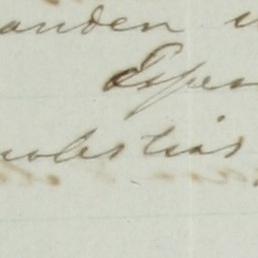 anden u
Espe
molestias